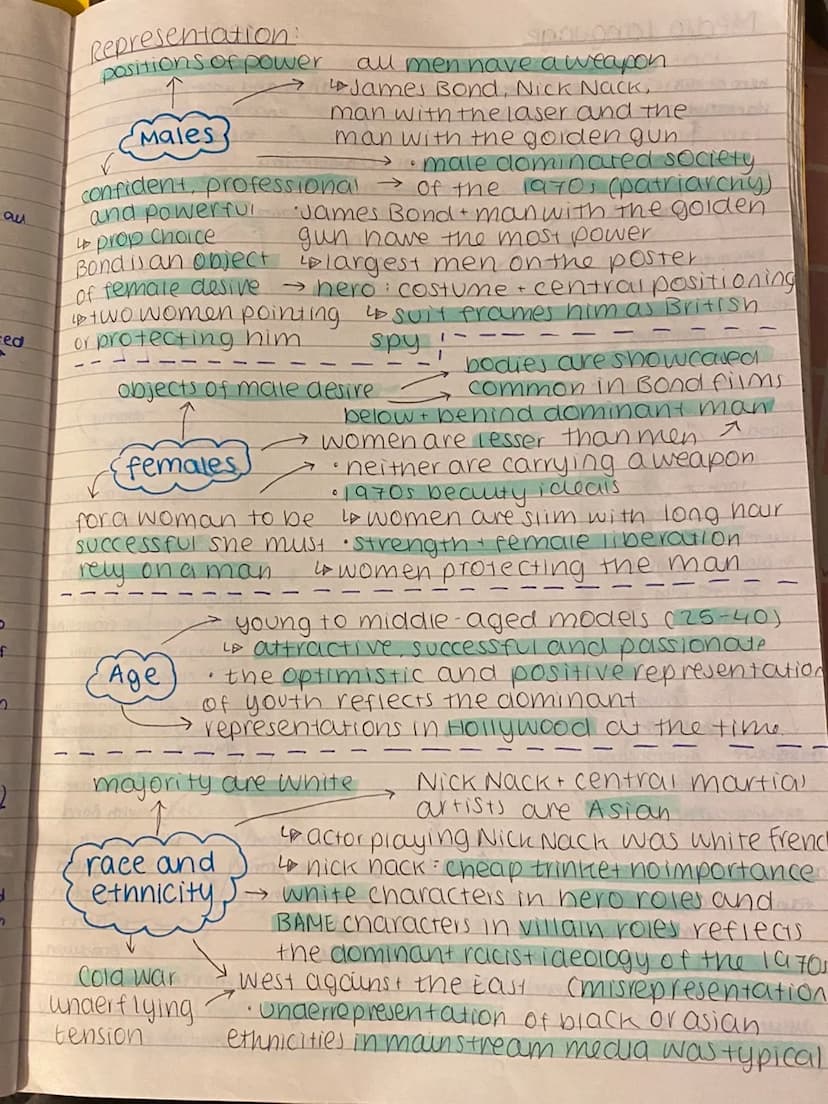 Representation:
positions of power all men have a weapon
↳ James Bond, Nick Nack,
man with the laser and the
Males man with the golden gun
· male dominated society
confident, professional → of the 1970s (patriarchy)
au and powerful · James Bond + man with the golden
↳ prop choice gun have the most power
Bond is an object ↳ largest men on the poster
of female desire → hero : costume + central positioning
↳ two women pointing ↳ suit frames him as British
ed or protecting him spy
bodies are showcased
objects of male desire common in Bond films
below + behind dominant man
women are lesser than men
females · neither are carrying a weapon
· 1970s beauty ideals
for a woman to be ↳ women are slim with long hair
successful she must · strength + female liberation
rely on a man ↳ women protecting the man
young to middle-aged models (25-40)
↳ attractive, successful and passionate
Age · the optimistic and positive representation
of youth reflects the dominant
representations in Hollywood at the time
majority are white Nick Nack + central martial
artists are Asian
↳ actor playing Nick Nack was white french
race and ↳ nick nack : cheap trinket no importance
ethnicity → white characters in hero roles and
BAME characters in villain roles reflects
the dominant racist ideology of the 1970s
cold war west against the East (misrepresentation
underflying · underrepresentation of black or asian
tension ethnicities in mainstream media was typical